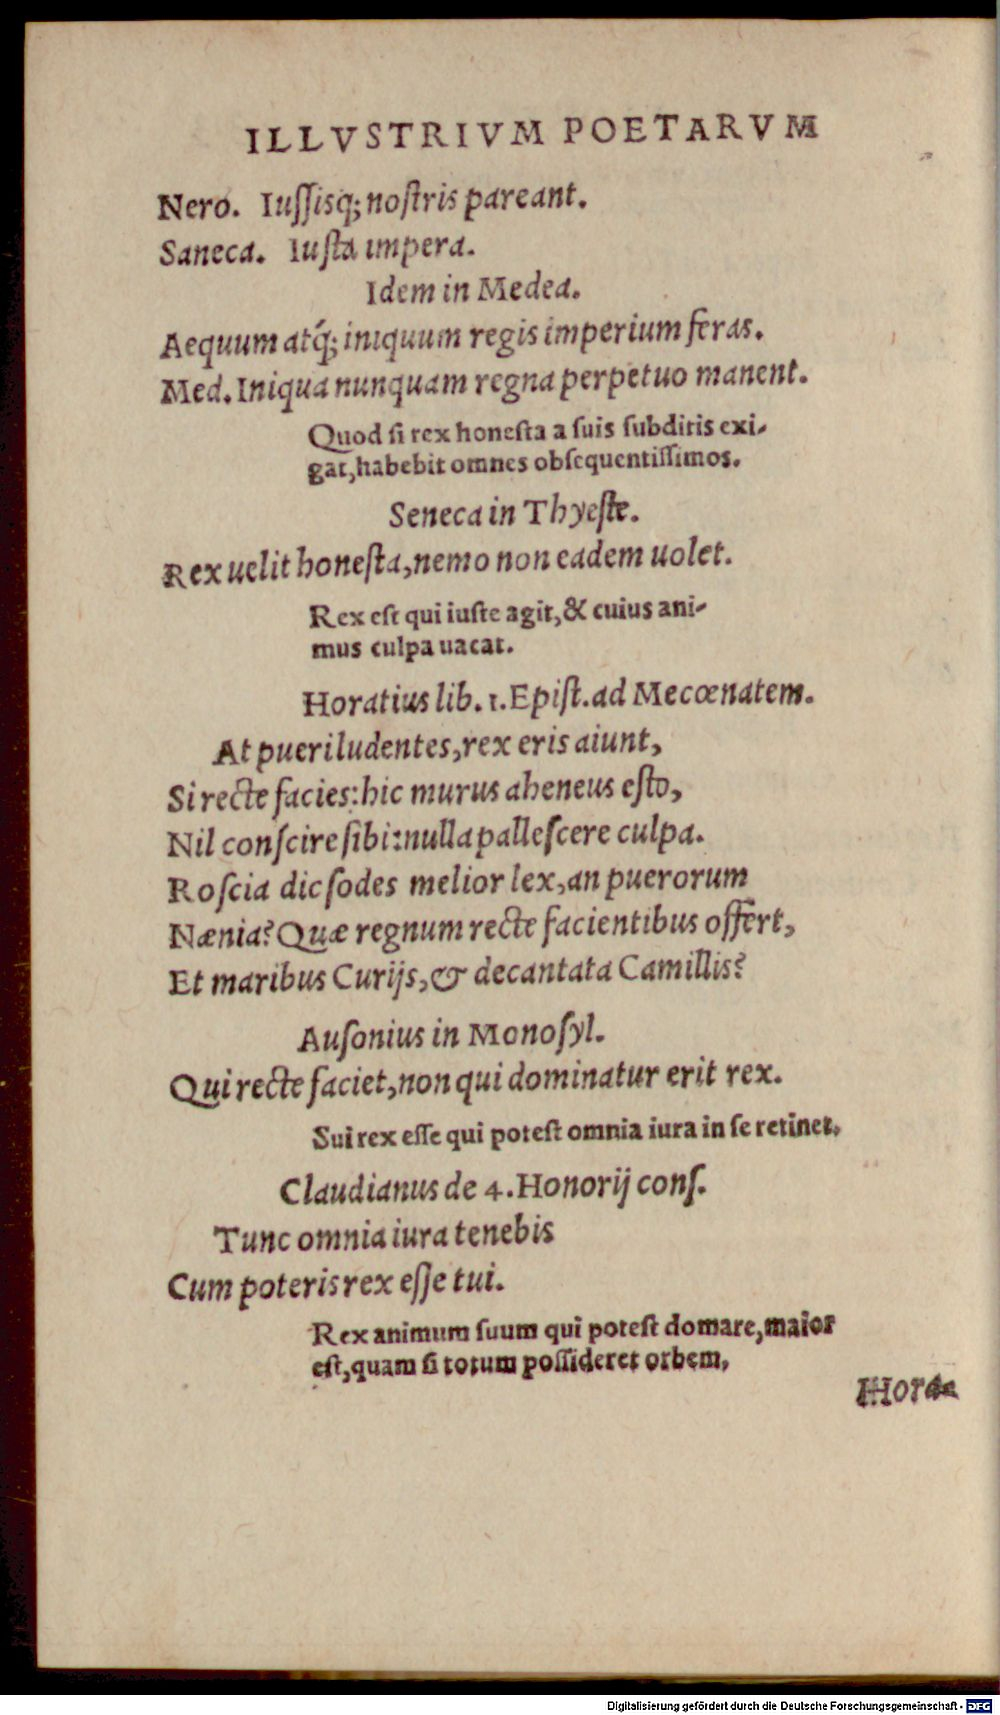 ILLVSTRIVM POETARVM
Nero. Iuſſisq; noſtris pareant.
Saneca. Iuſta impera.
Idem in Medea.
Aequum atq́; iniquum regis imperium feras.
Med. Iniqua nunquam regna perpetuo manent.
Quod ſi rex honeſta a ſuis ſubditis exi-
gat, habebit omnes obſequentiſſimos.
Seneca in Thyeſte.
Rex uelit honeſta, nemo non eadem uolet.
Rex eſt qui iuſte agit, & cuius ani-
mus culpa uacat.
Horatius lib. 1. Epiſt. ad Mecœnatem.
At pueri ludentes, rex eris aiunt,
Si recte facies: hic murus aheneus eſto,
Nil conſcire ſibi: nulla palleſcere culpa.
Roſcia dic ſodes melior lex, an puerorum
Nænia? Quæ regnum recte facientibus offert,
Et maribus Curijs, & decantata Camillis?
Auſonius in Monoſyl.
Qui recte faciet, non qui dominatur erit rex.
Sui rex eſſe qui poteſt omnia iura in ſe retinet.
Claudianus de 4. Honorij conſ.
Tunc omnia iura tenebis
Cum poteris rex eſſe tui.
Rex animum ſuum qui poteſt domare, maior
eſt, quam ſi totum poſſideret orbem.
Digitalisierung gefördert durch die Deutsche Forschungsgemeinschaft - DFG